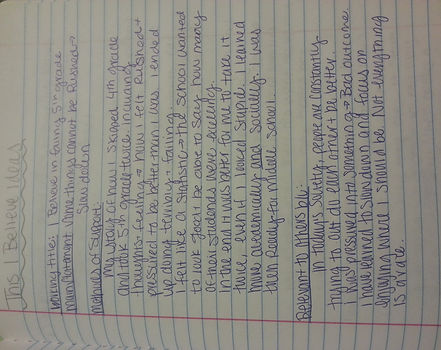 This I Believe Ideas
Working title: I Believe in failing 5th grade
Main Statement: Some things cannot be Rushed→
Slow down
Methods of Support:
My story of how I skipped 4th grade
and took 5th grade twice. Including
thoughts + feelings → how I felt rushed +
pressured to be better than I was. I ended
up doing terribly + failing.
I felt like a statistic → the School wanted
to look good + be able to say how many
of their students were excelling.
In the end it was better for me to take it
twice, even if I looked stupid. I learned
more academically and socially. I was
then Ready for Middle School.
Relevant to others b/c:
In todays society, people are constantly
trying to out do each other + be better.
I was pressured into something → Bad outcome.
I have learned to slow down and focus on
enjoying where I should be. Not everything
is a race.